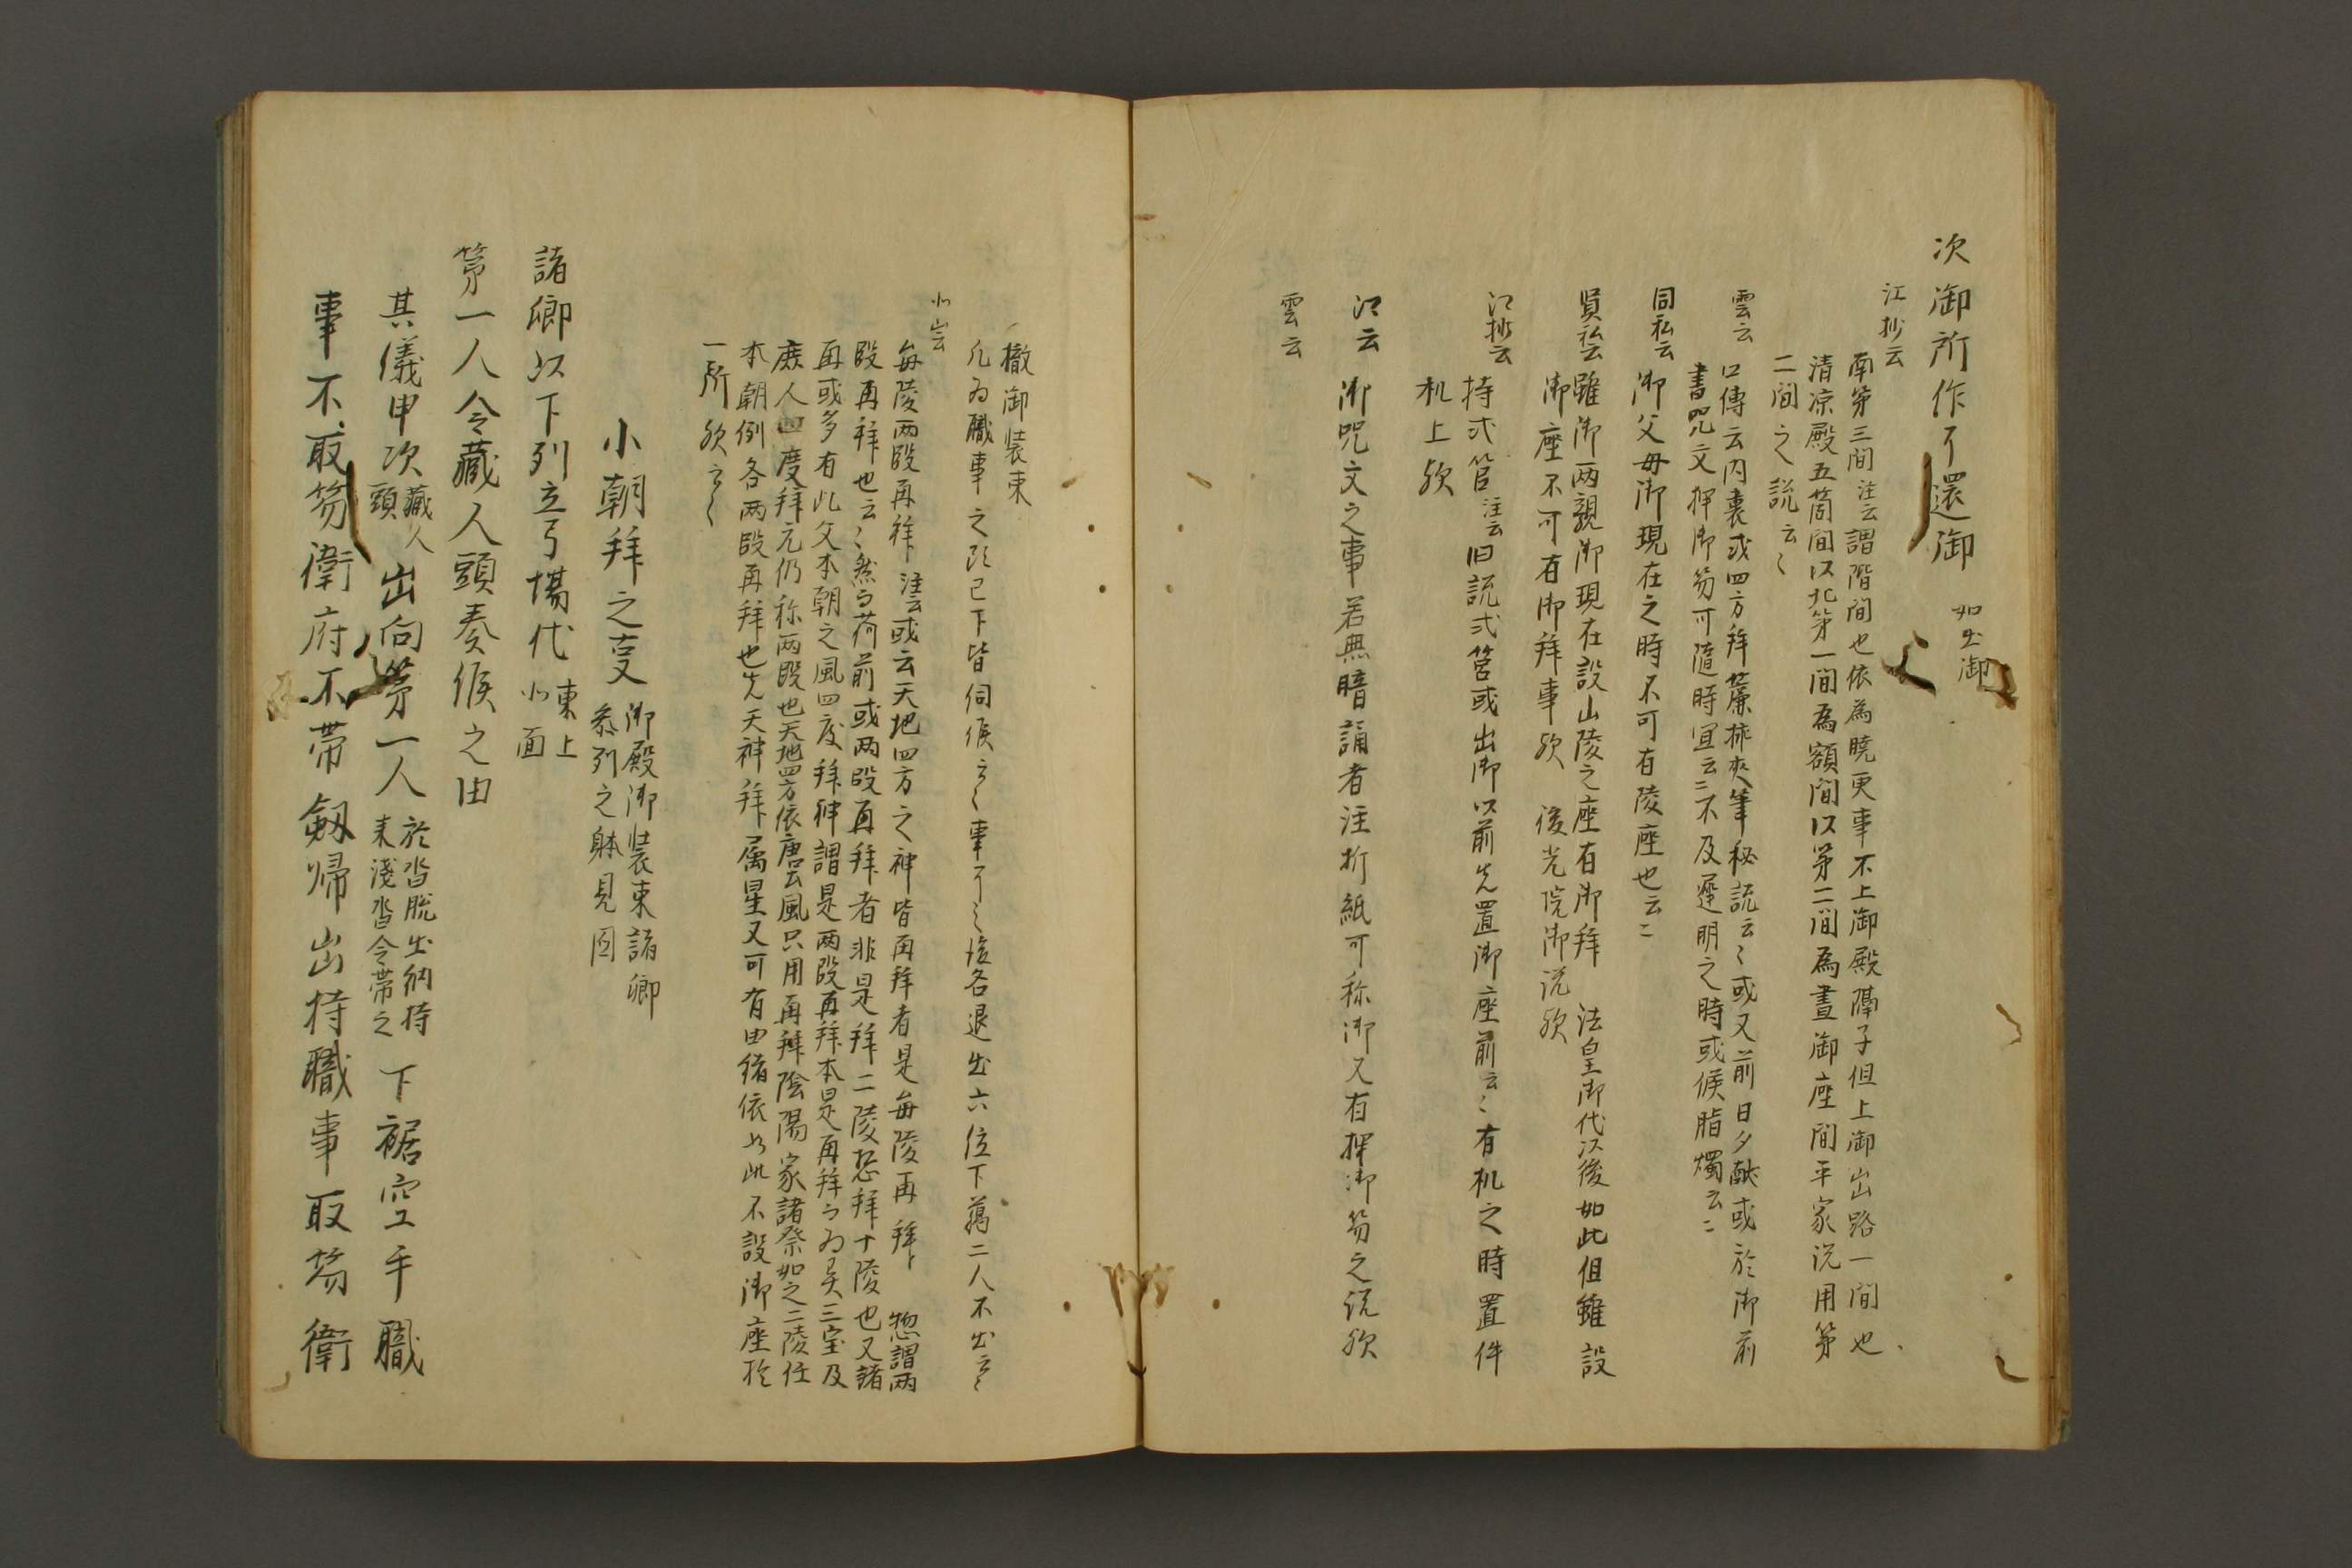 次御所作了還御 如出御
江抄云
南第三間 注云 謂階間也依為曉更事不上御殿隔子但上御出路一間也
清凉殿五箇間以北第一間為額間以第二間為晝御座間平家説用第
二間之説云〻
雲云
口傳云内裏或四方拜簾挿夾筆秘説云〻或又前日夕獻或於御前
書咒文押御笏可隨時宜云〻不及遲明之時或候脂燭云〻
同私云
御父母御現在之時不可有陵座也云〻
資私云
雖御両親御現在設山陵之座有御拜 法皇御代以後如此但雖設
御座不可有御拜事欤 後光院御説欤
江抄云
持式筥 注云 旧説式筥或出御以前先置御座前云〻有机之時置件
机上欤
江云
御咒文之事若無暗誦者注折紙可称御又有押御笏之説欤
雲云
撤御装束
凡為職事之頭已下皆伺候云〻事了〻後各退出六位下﨟二人不出云〻
北山云
每陵両段再拜 注云 或云天地四方之神皆再拜者是每陵再拜〻 惣謂両
段再拜也云〻然而荷前或両段再拜者非是拜二陵惣拜十陵也又諸
再或多有此文本朝之風四度拜神謂是両段再拜本是再拜而為異三宝及
庶人四度拜元仍称両段也天地四方依唐土風只用再拜陰陽家諸祭如之二陵任
本朝例各両段再拜也先天神拜属星又可有由緒依如此不設御座於
一所欤云〻
小朝拜之事 御殿御装束諸卿
参列之躰見図
諸卿以下列立弓場代 東上
北面
第一人令藏人頭奏候之由
其儀申次 藏人
頭 出向第一人 於沓脱出納持
来淺沓令帶之 下裾空手職
事不取笏衛府不帶劔帰出持職事取笏衛